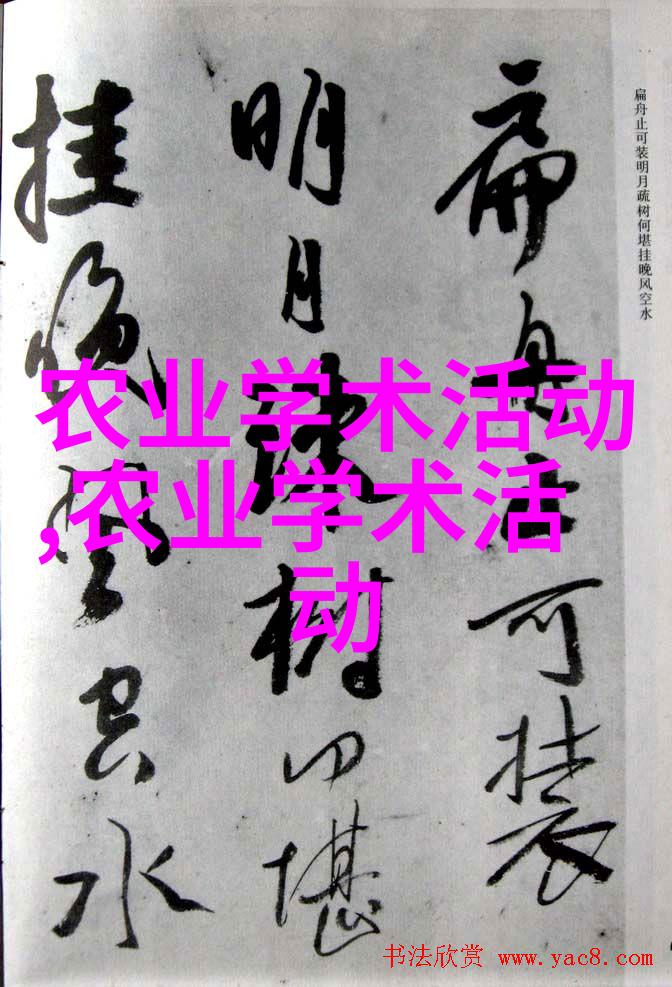 扁舟止可装
明月疏树何堪
挂晚风空水
扁舟止可装明月疏树何堪挂晚风空水
农业学术活动
,农业学术活
动
书法欣赏 www.yac8.com